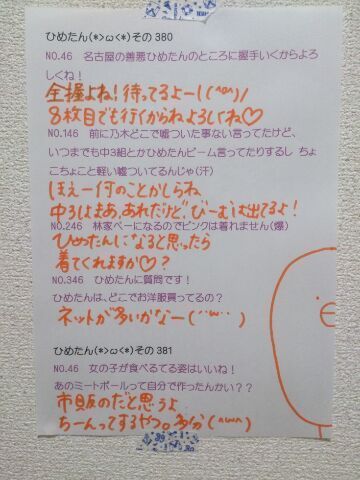 ひめたん(*>ω<*)その380
NO.46 名古屋の善悪ひめたんのところに握手いくからよろ
しくね！
全握よね！待ってるよー！(^o^)/
8枚目でも行くからねよろしくね♡
NO.146 前に乃木どこで嘘ついた事ない言ってたけど、
いつまでも中3組とかひめたんビーム言ってたりするし ちょ
こちょこと軽い嘘ついてるんじゃ(汗)
ほえー何のことかしらね
中3しはまあ、あれだけど、びーむは出てるよ！
NO.246 林家ペーになるのでピンクは着れません(爆)
ひめたんになると思ったら
着てくれますか♡？
NO.346 ひめたんに質問です！
ひめたんは、どこでお洋服買ってるの？
ネットが多いかなー(¨ω¨)
ひめたん(*>ω<*)その381
NO.46 女の子が食べてる姿はいいね！
あのミートボールって自分で作ったんかい？？
市販のだと思うよ
ちーんってするやつ。多分(^ω^)